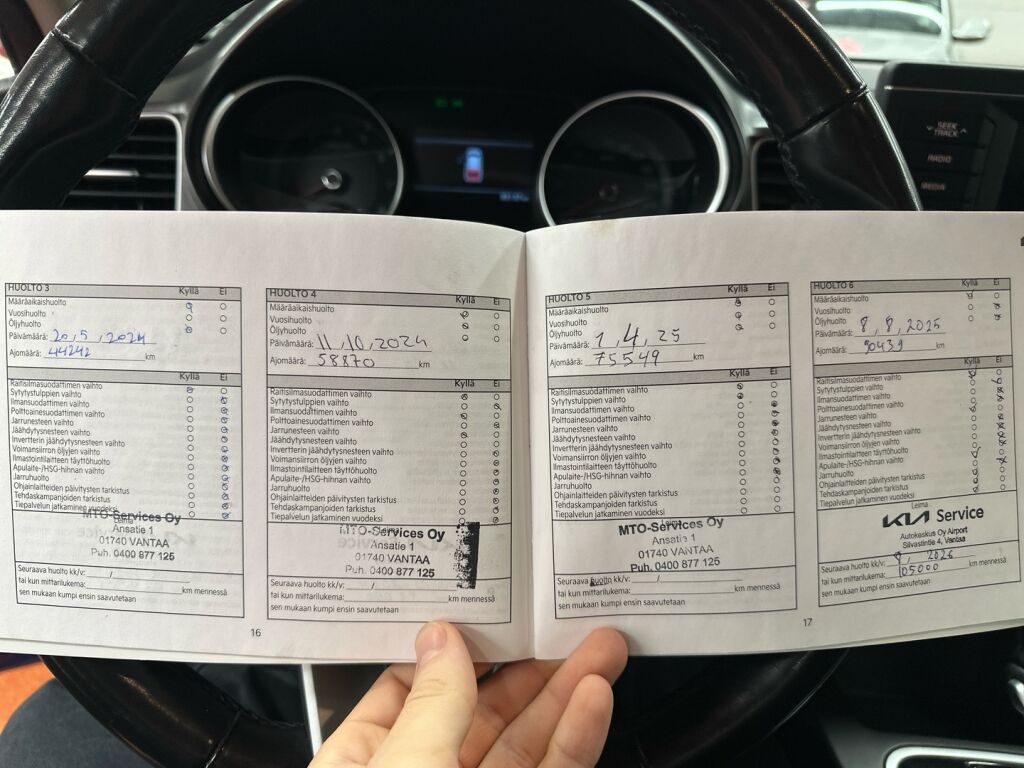 SEEK
TRACK
RADIO
MEDIA
HUOLTO 3 Kyllä Ei
Määräaikaishuolto
Vuosihuolto
Öljyhuolto
Päivämäärä: 20,5,2024
Ajomäärä: 44242 km
Kyllä Ei
Raitisilmasuodattimen vaihto
Sytytystulppien vaihto
Ilmansuodattimen vaihto
Polttoainesuodattimen vaihto
Jarrunesteen vaihto
Jäähdytysnesteen vaihto
Invertterin jäähdytysnesteen vaihto
Voimansiirron öljyjen vaihto
Ilmastointilaitteen täyttöhuolto
Apulaite-/HSG-hihnan vaihto
Jarruhuolto
Ohjainlaitteiden päivitysten tarkistus
Tehdaskampanjoiden tarkistus
Tiepalvelun jatkaminen vuodeksi
Leima
MTO-Services Oy
Ansatie 1
01740 VANTAA
Puh. 0400 877 125
Seuraava huolto kk/v: /
tai kun mittarilukema: km mennessä
sen mukaan kumpi ensin saavutetaan
16
HUOLTO 4 Kyllä Ei
Määräaikaishuolto
Vuosihuolto
Öljyhuolto
Päivämäärä: 11,10,2024
Ajomäärä: 58870 km
Kyllä Ei
Raitisilmasuodattimen vaihto
Sytytystulppien vaihto
Ilmansuodattimen vaihto
Polttoainesuodattimen vaihto
Jarrunesteen vaihto
Jäähdytysnesteen vaihto
Invertterin jäähdytysnesteen vaihto
Voimansiirron öljyjen vaihto
Ilmastointilaitteen täyttöhuolto
Apulaite-/HSG-hihnan vaihto
Jarruhuolto
Ohjainlaitteiden päivitysten tarkistus
Tehdaskampanjoiden tarkistus
Tiepalvelun jatkaminen vuodeksi
Leima
MTO-Services Oy
Ansatie 1
01740 VANTAA
Puh. 0400 877 125
Seuraava huolto kk/v: /
tai kun mittarilukema: km mennessä
sen mukaan kumpi ensin saavutetaan
HUOLTO 5 Kyllä Ei
Määräaikaishuolto
Vuosihuolto
Öljyhuolto
Päivämäärä: 1,4,25
Ajomäärä: 75549 km
Kyllä Ei
Raitisilmasuodattimen vaihto
Sytytystulppien vaihto
Ilmansuodattimen vaihto
Polttoainesuodattimen vaihto
Jarrunesteen vaihto
Jäähdytysnesteen vaihto
Invertterin jäähdytysnesteen vaihto
Voimansiirron öljyjen vaihto
Ilmastointilaitteen täyttöhuolto
Apulaite-/HSG-hihnan vaihto
Jarruhuolto
Ohjainlaitteiden päivitysten tarkistus
Tehdaskampanjoiden tarkistus
Tiepalvelun jatkaminen vuodeksi
Leima
MTO-Services Oy
Ansatie 1
01740 VANTAA
Puh. 0400 877 125
Seuraava huolto kk/v: /
tai kun mittarilukema: km mennessä
sen mukaan kumpi ensin saavutetaan
17
HUOLTO 6 Kyllä Ei
Määräaikaishuolto
Vuosihuolto
Öljyhuolto
Päivämäärä: 8,8,2025
Ajomäärä: 90439 km
Kyllä Ei
Raitisilmasuodattimen vaihto
Sytytystulppien vaihto
Ilmansuodattimen vaihto
Polttoainesuodattimen vaihto
Jarrunesteen vaihto
Jäähdytysnesteen vaihto
Invertterin jäähdytysnesteen vaihto
Voimansiirron öljyjen vaihto
Ilmastointilaitteen täyttöhuolto
Apulaite-/HSG-hihnan vaihto
Jarruhuolto
Ohjainlaitteiden päivitysten tarkistus
Tehdaskampanjoiden tarkistus
Tiepalvelun jatkaminen vuodeksi
KIA Service
Autokeskus Oy Airport
Silvastintie 4, Vantaa
Seuraava huolto kk/v: 8, 2026
tai kun mittarilukema: 105000 km mennessä
sen mukaan kumpi ensin saavutetaan